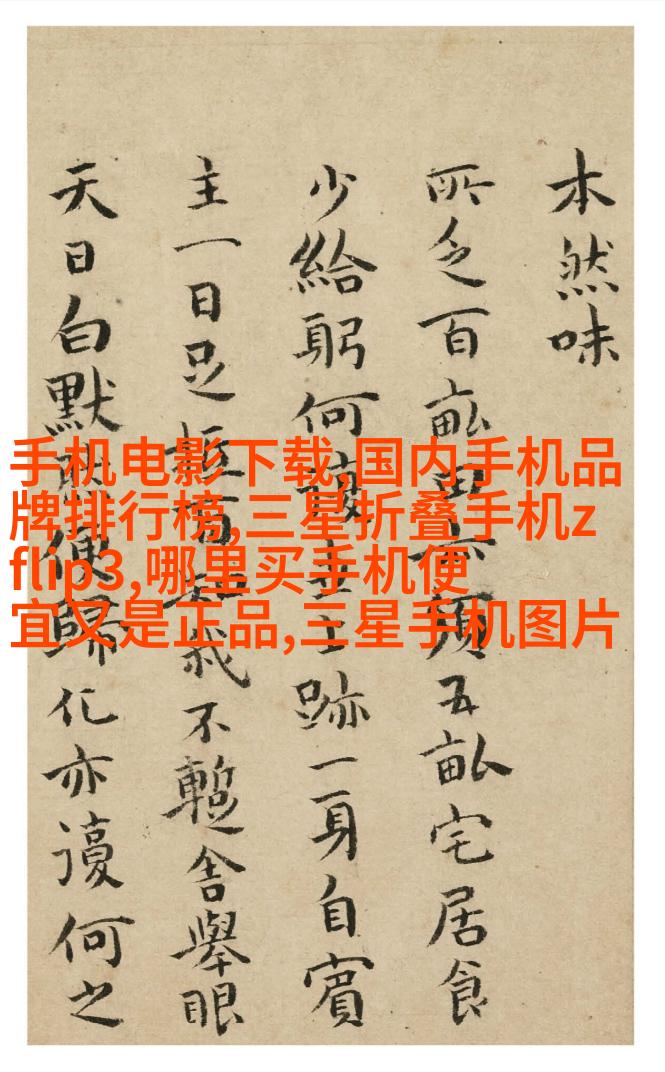 本然味
所乏百畝田亦須五畝宅居食
少給躬何跡一身自賓
主一日足我不暫舍舉眼
天日白默然便歸化亦謾何之
手机电影下载,国内手机品
牌排行榜,三星折叠手机z
flip3,哪里买手机便
宜又是正品,三星手机图片